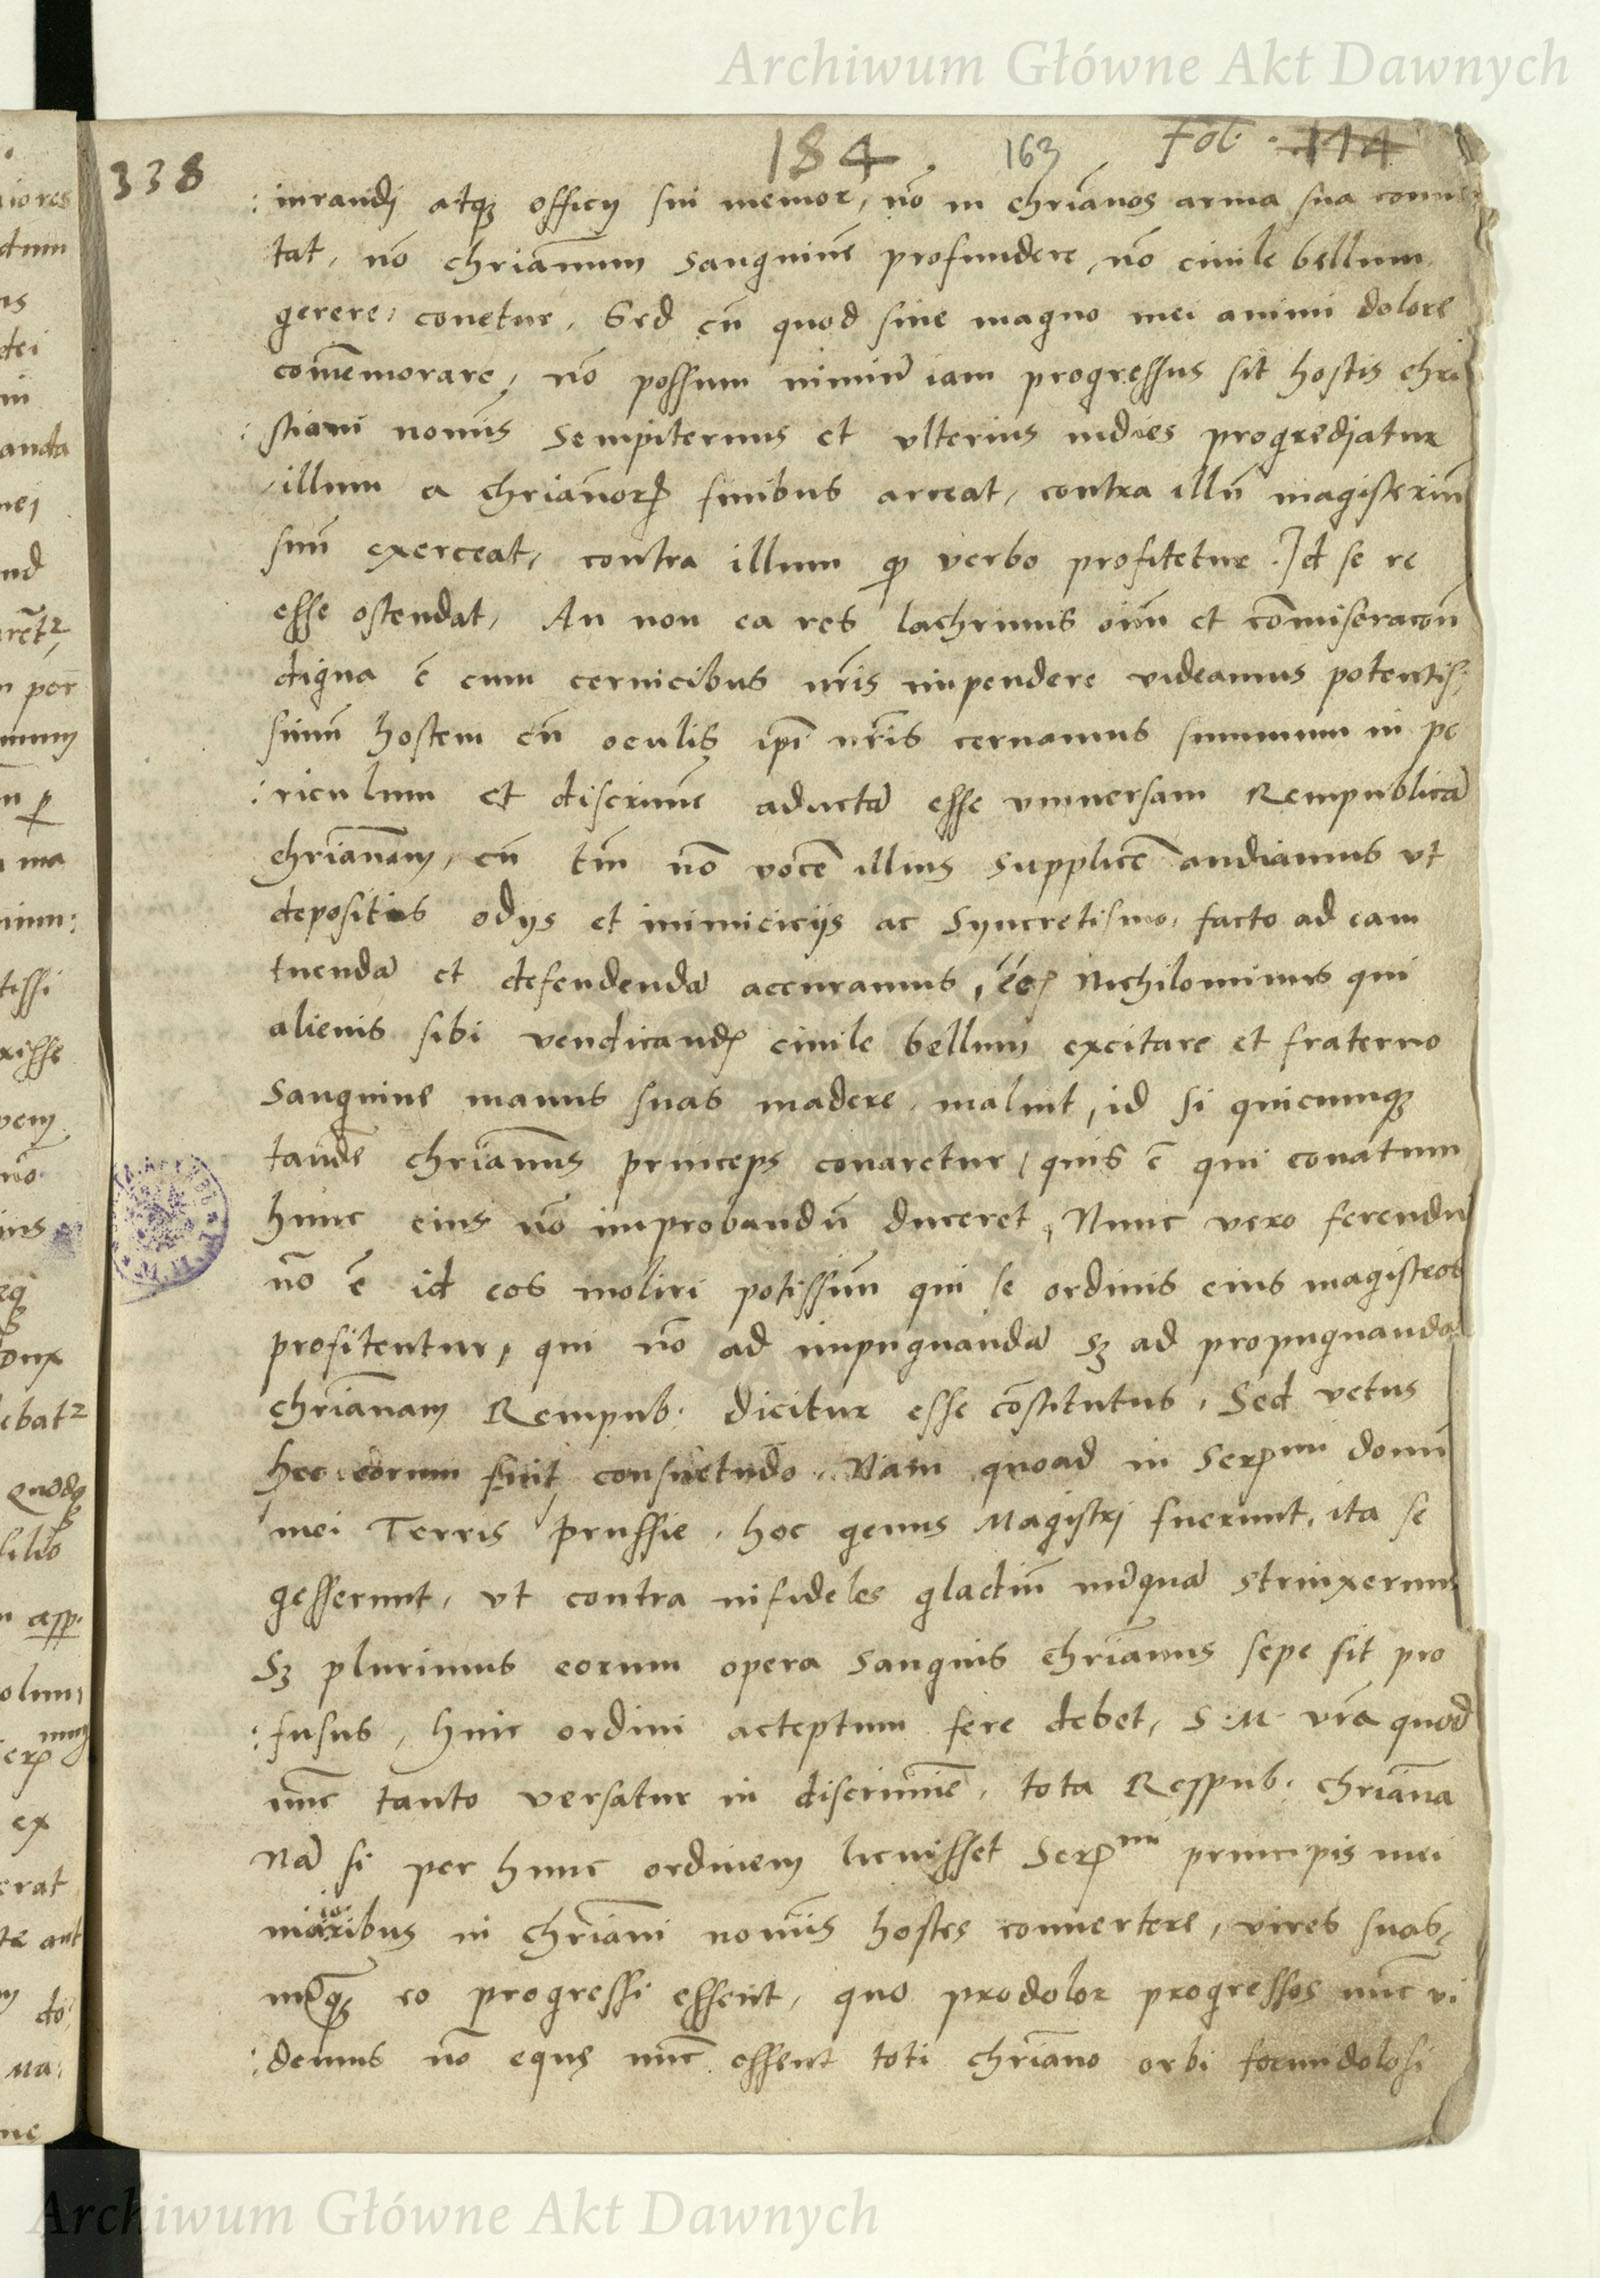 Archiwum Główne Akt Dawnych
338 184. 163 Fol. 114
:iurandj atq₃ officij sui memor, nō in chriānos arma sua conuer
tat, nō chriānum sanguinē profundere, nō ciuile bellum
gerere, conetur, Sed cū quod sine magno mei animi dolore
comēmorare, nō possum nimiū iam progressus sit hostis chri
:stiani nomīs sempiternus et vlterius indies progrediatur
illum a chriānorꝝ finibus arceat, contra illū magisteriū
suū exerceat, contra illum ꝙ verbo profitetur. Id se re
esse ostendat, An non ea res lachrimis oīm et comīseracōn
digna ē cum ceruicibus nr̄is impendere videamus potentis:
simū hostem cū oculis ipī nr̄is cernamus summum in pe
:riculum et discrimē aductā esse vniuersam Rempublicā
chriānam, cū tm̄ nō vocē illius supplicē audiamus vt
depositis odijs et inimicicijs ac syncretismo, facto ad eam
tuendā et defendendā accuramus, Nichilominus qui
alienis sibi vendicandꝭ ciuile bellum excitare et fraterno
sanguine manus suas madere, maluit, id si quicumq₃
tandē chriānus princeps conaretur, quis ē qui conatum
hunc eius nō improbandū duceret, Nunc vero ferendū
nō ē id eos moliri potissimū qui se ordinis eius magistros
profitentur, qui nō ad impugnandā sʒ ad propugnandā
chriānam Rempub. dicitur esse cōstitutus, Sed vetus
hec eorum fuit consuetudo. Nam quoad in Serꝫmi domī
mei Terris prussie, hoc genus Magistrj fuerunt, ita se
gesserunt, vt contra infideles gladiū nūquā strinxerunt
sʒ plurimus eorum opera sanguis chriānus sepe sit pro
:fusus, huic ordini acceptum fere debet, S. M. vr̄a quod
nūc tanto versatur in discrimīe, tota Respub. chriāna
Nā si per hunc ordinem licuisset Serꝫmi principis mei
maioribus in chriāni nomīis hostes conuertere, vires suas,
nūq₃ eo progressi essent, quo prodolor progressos nūc vi
:demus nō eque nūc essent toti chriāno orbi formidolosi
Archiwum Główne Akt Dawnych